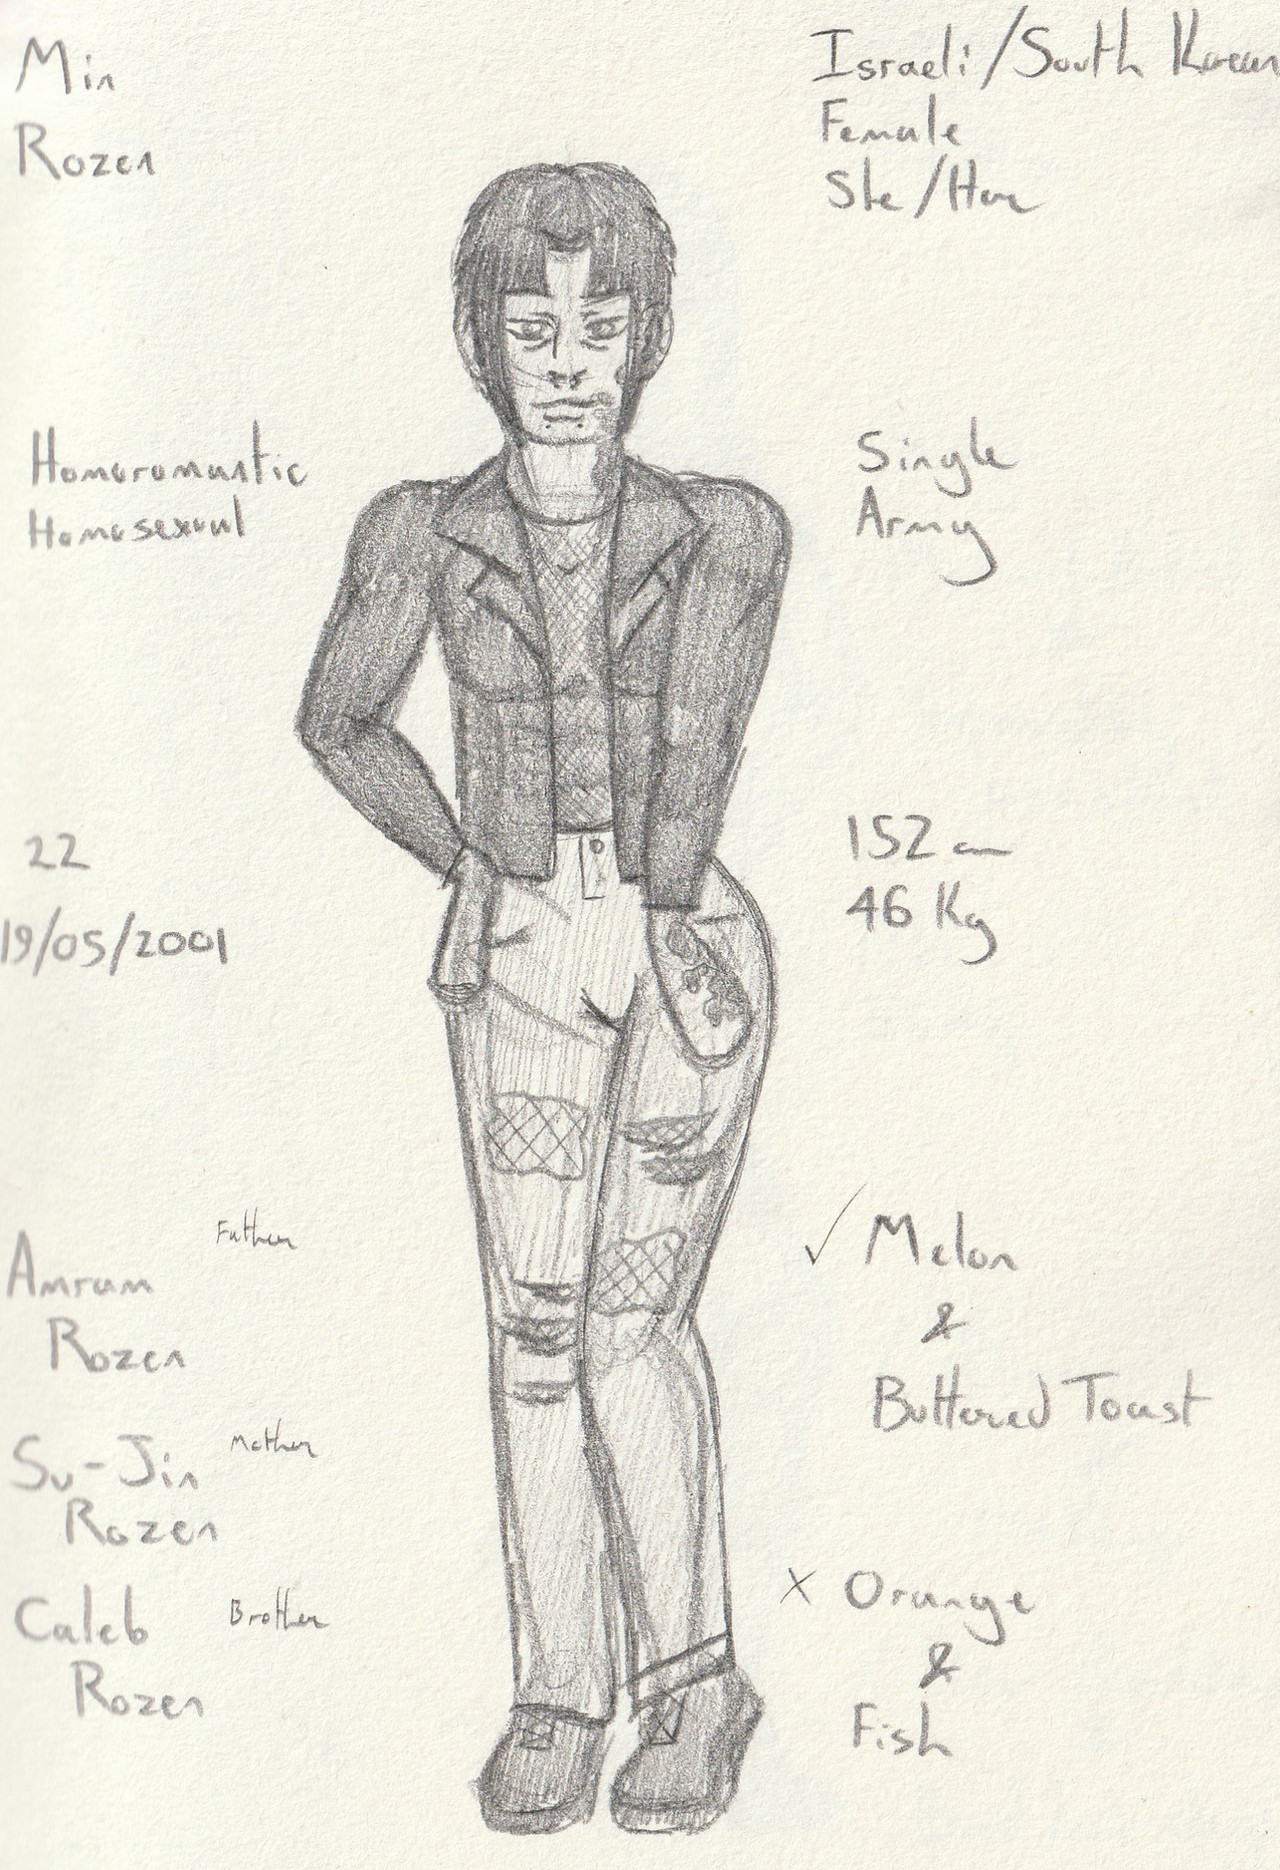 Min
Rozen
Israeli/South Korean
Female
She/Her
Homoromantic
Homosexual
Single
Army
22
19/05/2001
152 cm
46 Kg
Father
Amram
Rozen
Mother
Su-Jin
Rozen
Caleb Brother
Rozen
✓ Melon
&
Buttered Toast
X Orange
&
Fish